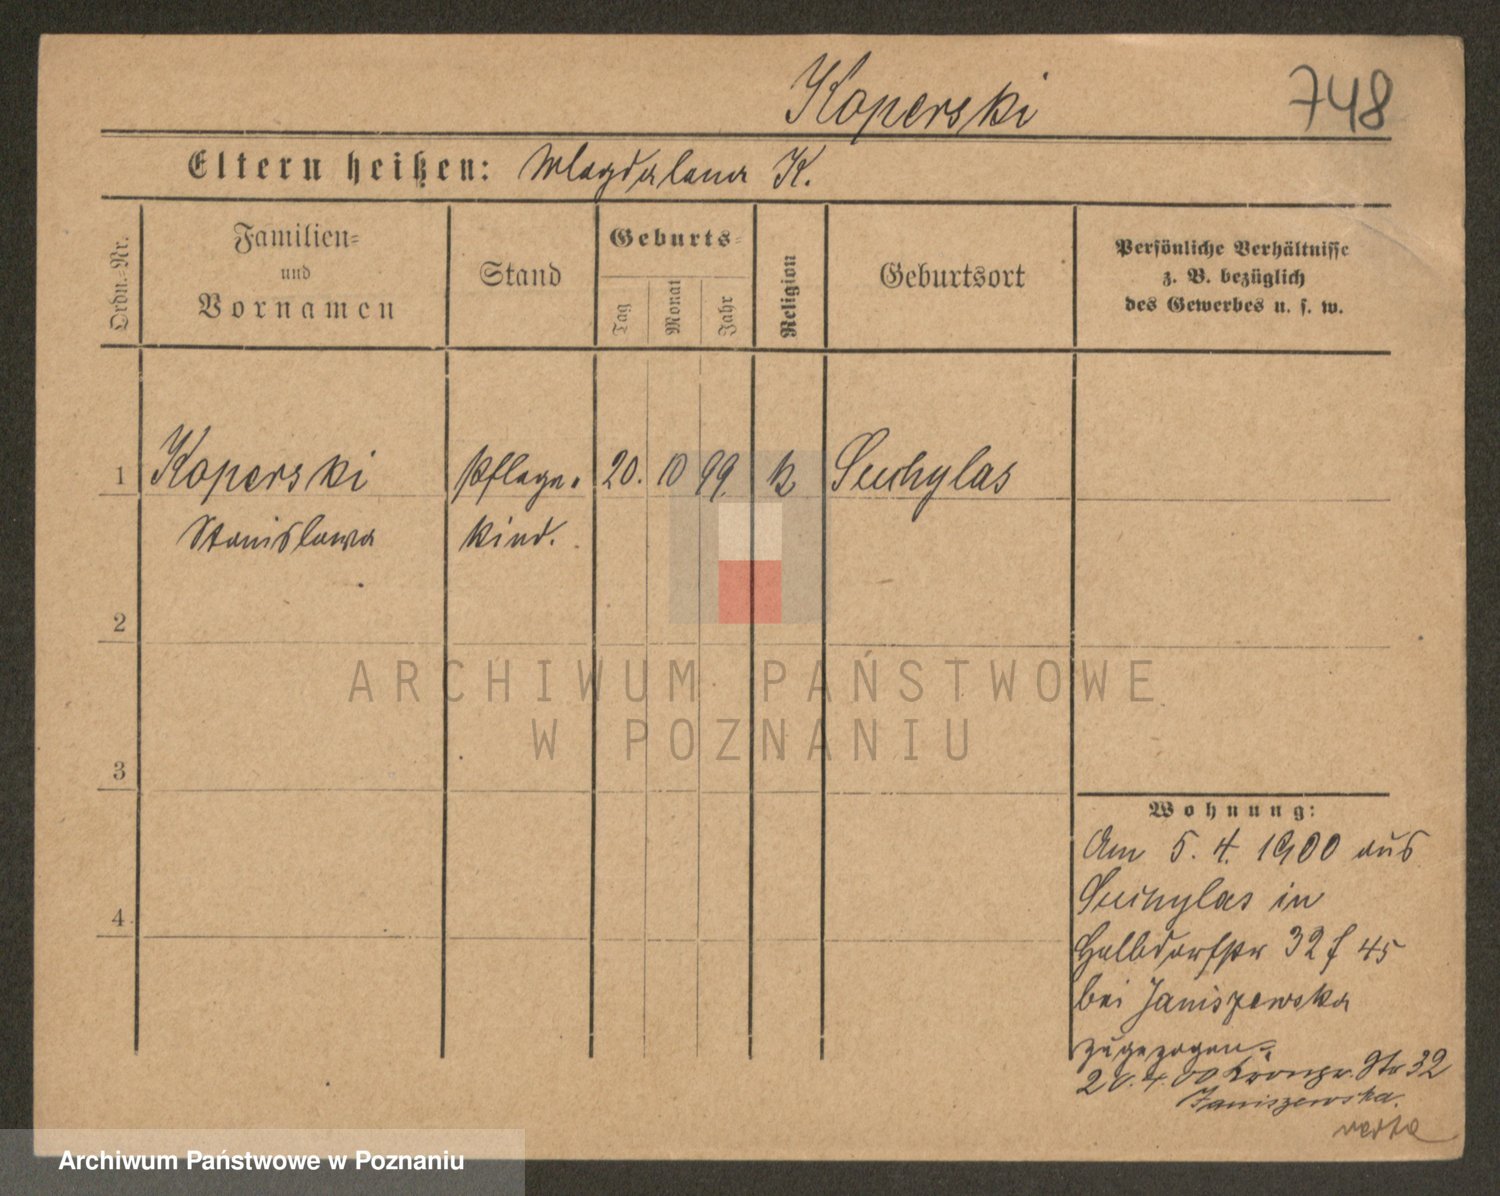 Koperski
748
Eltern heißen: Magdalena K.
Ordn.-Nr.
Familien-
und
Vornamen
Stand
Geburts-
Tag
Monat
Jahr
Religion
Geburtsort
Persönliche Verhältnisse
z. B. bezüglich
des Gewerbes u. s. w.
1 Koperski Pflege- 20. 10 99. k Suchylas
Stanislawa kind.
2
3
4
Wohnung:
Am 5. 4. 1900 aus
Suchylas in
Halbdorfstr 32 f 45
bei Janiszewska
zugezogen.
4 00 Kronpr. Str 32
Janiszewska.
verte
ARCHIWUM PAŃSTWOWE
W POZNANIU
Archiwum Państwowe w Poznaniu